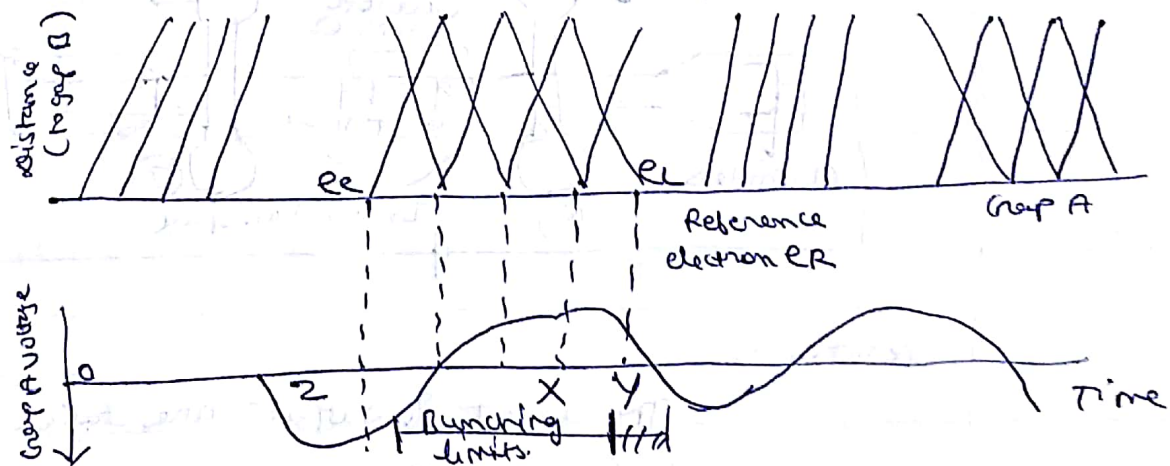 Distance
(to gap B)
ee
eL
Reference
electron eR
Gap A
Gap A Voltage
0
Z
X
Y
Time
Bunching
limits.